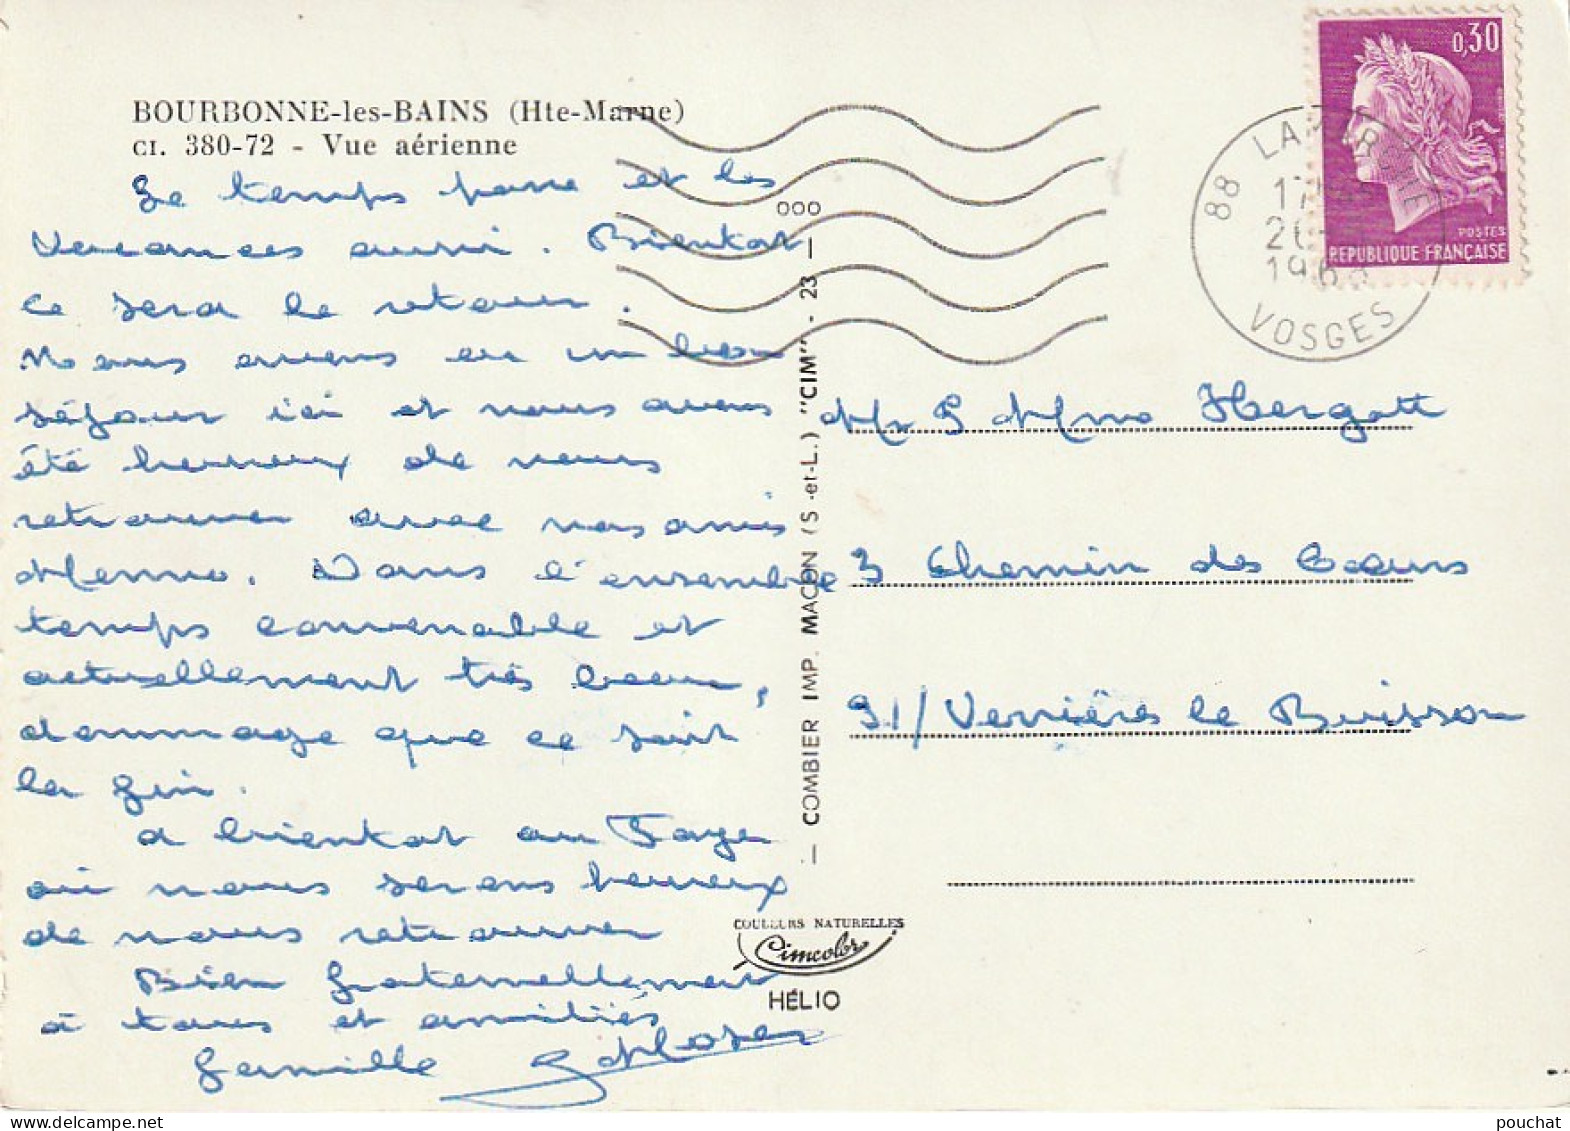 BOURBONNE-les-BAINS (Hte-Marne)
CI. 380-72 - Vue aérienne
Le temps passe et les
vacances aussi. Bientot
ce sera le retour.
Nous avons eu un bon
séjour ici et nous avons
été heureux de nous
retrouver avec nos amis
Dans l'ensemble
temps convenable et
actuellement très beau,
dommage que ce soit
la fin.
a bientot au Foyer
où nous serons heureux
de nous retrouver
Bien fraternellement
à tous et amitiés
famille
0,30
POSTES
REPUBLIQUE FRANÇAISE
88 LAMARCHE
17
VOSGES
Mr & Mme Hergott
3 Chemin des Coeurs
91/ Verrières le Buisson
— COMBIER IMP. MACON (S.-et-L.) "CIM" - 23 —
COULEURS NATURELLES
Cimcolor
HÉLIO
pouchat